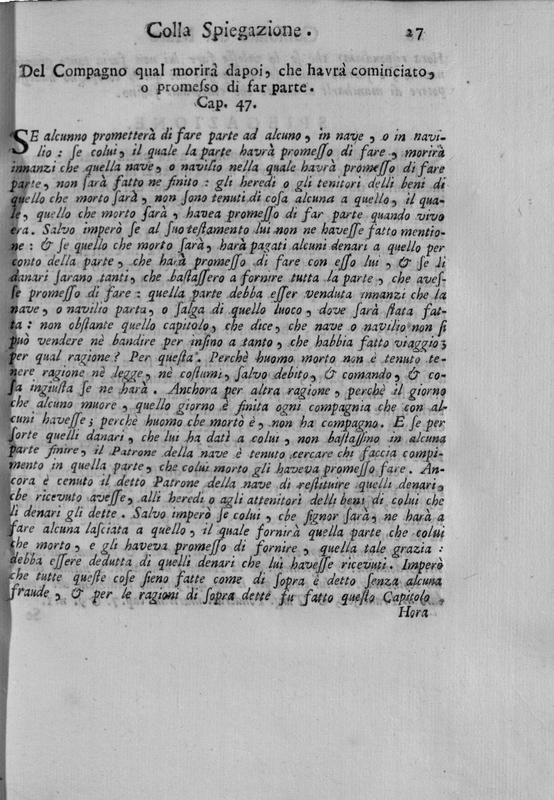 Colla Spiegazione. 27
Del Compagno qual morirà dapoi, che havrà cominciato,
o promesso di far parte.
Cap. 47.
SE alcunno prometterà di fare parte ad alcuno, in nave, o in navi-
lio: se colui, il quale la parte havrà promesso di fare, morirà
innanzi che quella nave, o navilio nella quale havrà promesso di fare
parte, non sarà fatto ne finito: gli heredi o gli tenitori delli beni di
quello che morto sarà, non sono tenuti di cosa alcuna a quello, il qua-
le, quello che morto sarà, havea promesso di far parte quando vivo
era. Salvo imperò se al suo testamento lui non ne havesse fatto mentio-
ne: & se quello che morto sarà, harà pagati alcuni denari a quello per
conto della parte, che harà promesso di fare con esso lui, & se li
danari sarano tanti, che bastassero a fornire tutta la parte, che aves-
se promesso di fare: quella parte debba esser venduta innanzi che la
nave, o navilio parta, o salga di quello luoco, dove sarà stata fat-
ta: non obstante quello capitolo, che dice, che nave o navilio non si
può vendere nè bandire per insino a tanto, che habbia fatto viaggio;
per qual ragione? Per questa. Perchè huomo morto non è tenuto te-
nere ragione nè legge, nè costumi, salvo debito, & comando, & co-
sa ingiusta se ne harà. Anchora per altra ragione, perchè il giorno
che alcuno muore, quello giorno è finita ogni compagnia che con al-
cuni havesse; perchè huomo che morto è, non ha compagno. E se per
sorte quelli danari, che lui ha dati a colui, non bastassino in alcuna
parte finire, il Patrone della nave è tenuto cercare chi faccia compi-
mento in quella parte, che colui morto gli haveva promesso fare. An-
cora è cenuto il detto Patrone della nave di restituire quelli denari,
che ricevuto avesse, alli heredi o agli attenitori delli beni di colui che
li denari gli dette. Salvo imperò se colui, che signor sarà, ne harà a
fare alcuna lasciata a quello, il quale fornirà quella parte che colui
che morto, e gli haveva promesso di fornire, quella tale grazia:
debba essere dedutta di quelli denari che lui havesse ricevuti. Imperò
che tutte queste cose sieno fatte come di sopra è detto senza alcuna
fraude, & per le ragioni di sopra dette fu fatto questo Capitolo.
Hora